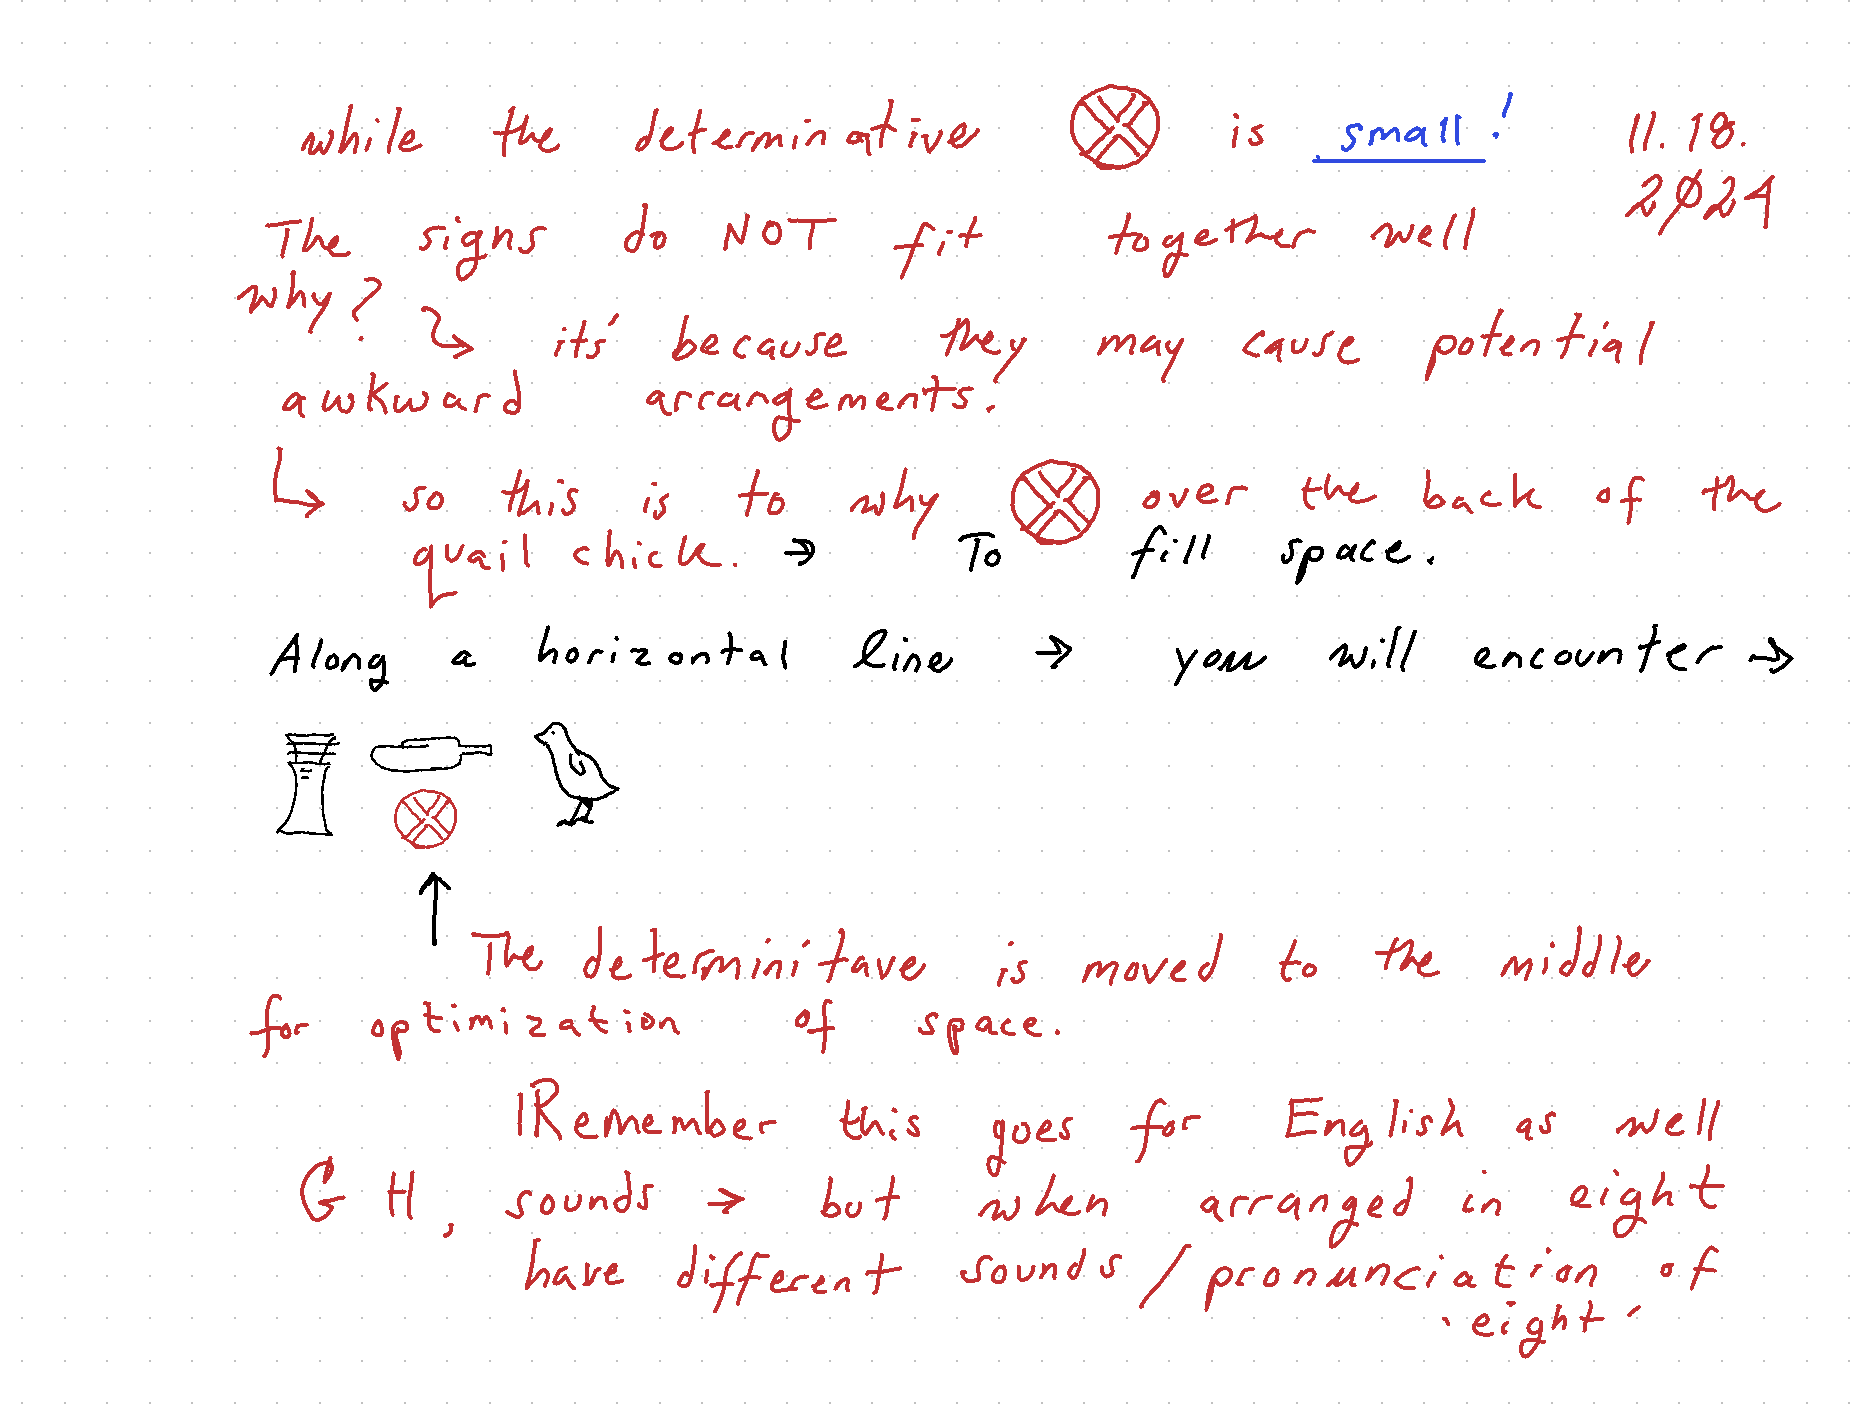 while the determinative is small! 11.18.
2024
The signs do NOT fit together well
why? its' because they may cause potential
awkward arrangements.
so this is to why over the back of the
quail chick. → To fill space.
Along a horizontal line → you will encounter →
The determinitave is moved to the middle
for optimization of space.
Remember this goes for English as well
G H, sounds → but when arranged in eight
have different sounds / pronunciation of
'eight'